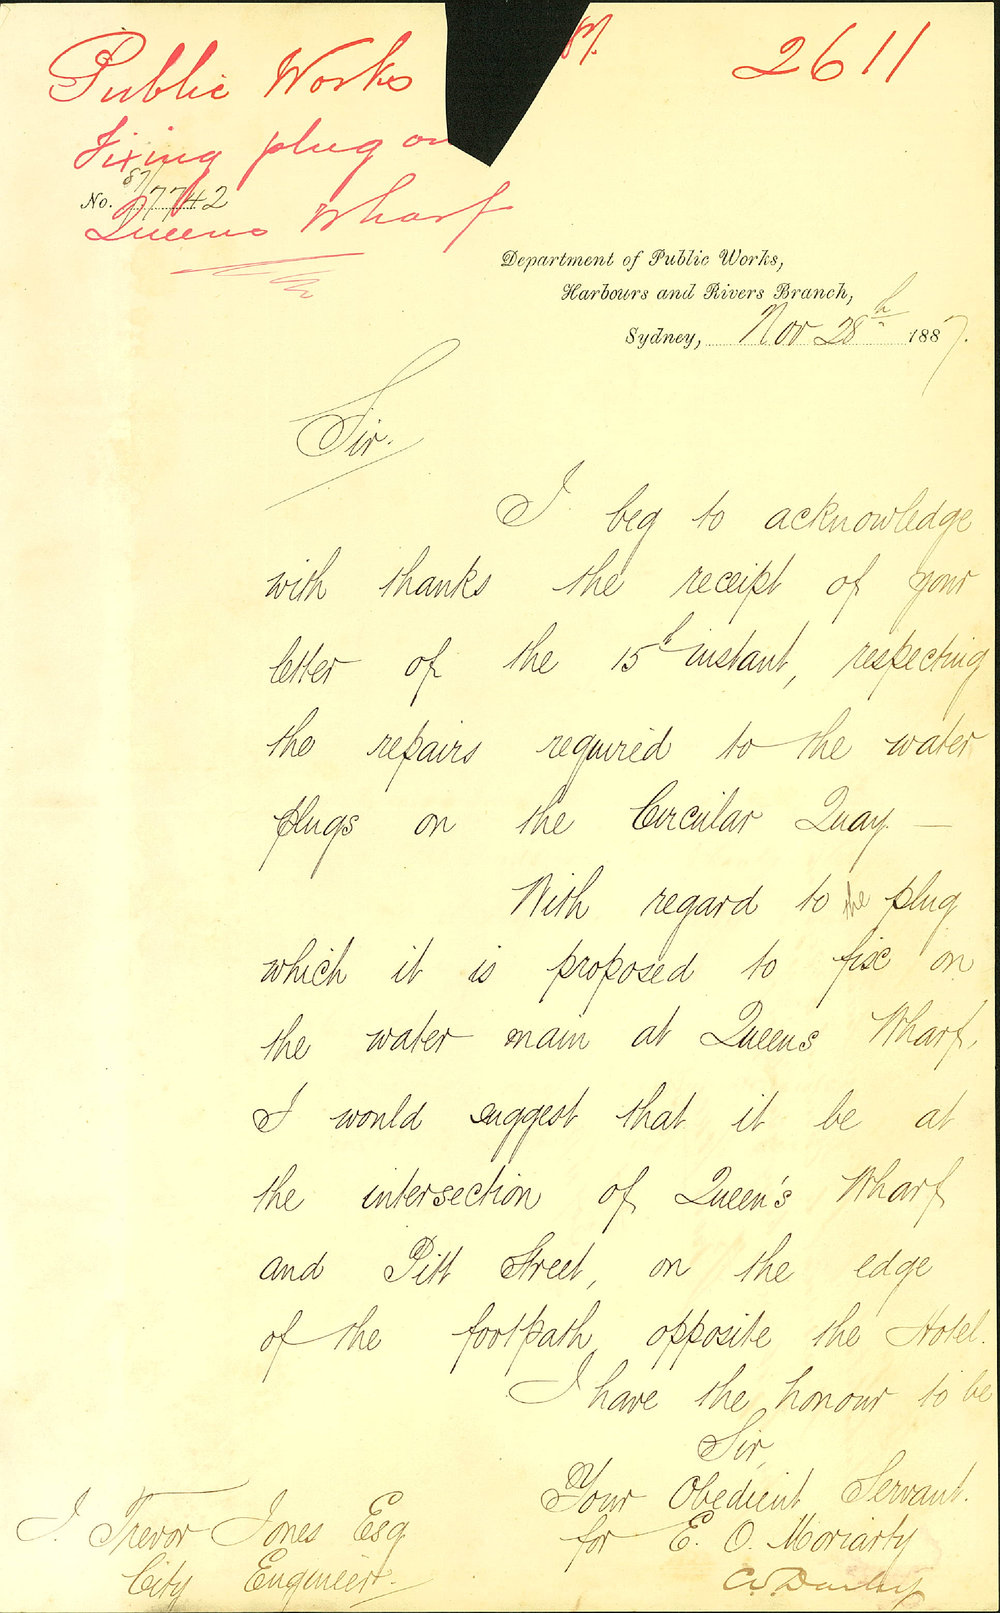 Public Works
Fixing plug on
Queens Wharf
87.
2611
No. 87/7742
Department of Public Works,
Harbours and Rivers Branch,
Sydney, Nov 28th 1887.
Sir.
I beg to acknowledge
with thanks the receipt of your
letter of the 15th instant, respecting
the repairs required to the water
plugs on the Circular Quay. —
With regard to the plug
which it is proposed to fix on
the water main at Queens Wharf,
I would suggest that it be at
the intersection of Queen's Wharf
and Pitt Street, on the edge
of the footpath opposite the Hotel.
I have the honour to be
Sir,
Your Obedient Servant.
for E. O. Moriarty
C. W. Darley
J. Trevor Jones Esq
City Engineer.